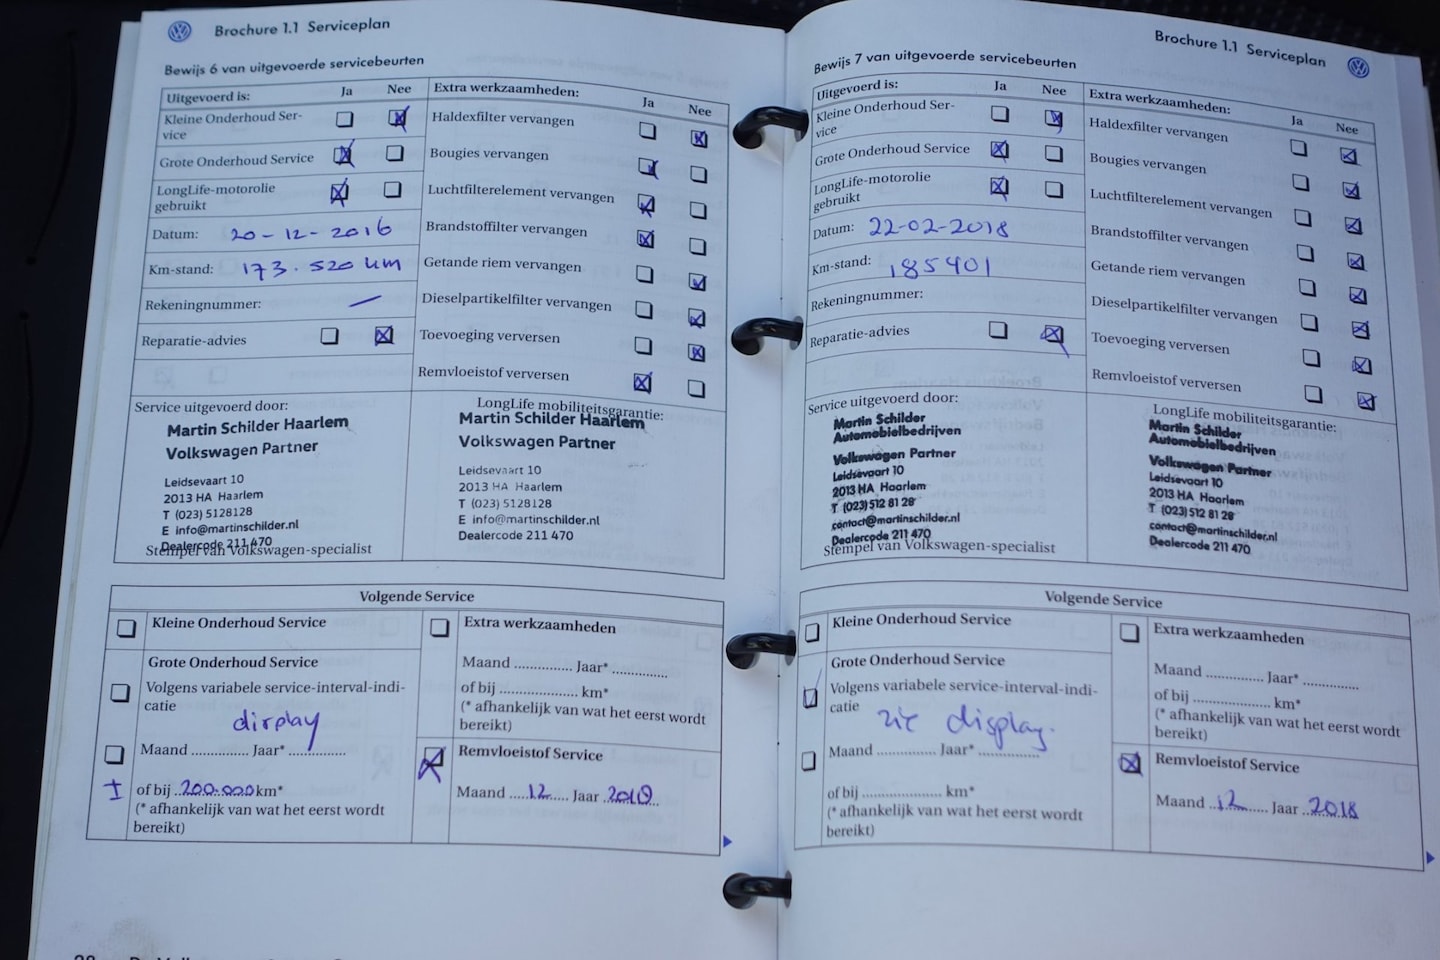 Brochure 1.1 Serviceplan
Bewijs 6 van uitgevoerde servicebeurten
Uitgevoerd is: Ja Nee
Kleine Onderhoud Ser-
vice
Grote Onderhoud Service
LongLife-motorolie
gebruikt
Datum: 20-12-2016
Km-stand: 173.520 km
Rekeningnummer: —
Reparatie-advies
Extra werkzaamheden: Ja Nee
Haldexfilter vervangen
Bougies vervangen
Luchtfilterelement vervangen
Brandstoffilter vervangen
Getande riem vervangen
Dieselpartikelfilter vervangen
Toevoeging verversen
Remvloeistof verversen
Service uitgevoerd door:
Martin Schilder Haarlem
Volkswagen Partner
Leidsevaart 10
2013 HA Haarlem
T (023) 5128128
E info@martinschilder.nl
Dealercode 211 470
Stempel van Volkswagen-specialist
LongLife mobiliteitsgarantie:
Martin Schilder Haarlem
Volkswagen Partner
Leidsevaart 10
2013 HA Haarlem
T (023) 5128128
E info@martinschilder.nl
Dealercode 211 470
Volgende Service
Kleine Onderhoud Service
Grote Onderhoud Service
Volgens variabele service-interval-indi-
catie
display
Maand .............. Jaar* ..............
± of bij 200.000 km*
(* afhankelijk van wat het eerst wordt
bereikt)
Extra werkzaamheden
Maand .............. Jaar* ..............
of bij ................... km*
(* afhankelijk van wat het eerst wordt
bereikt)
Remvloeistof Service
Maand ....12..... Jaar 2018
Brochure 1.1 Serviceplan
Bewijs 7 van uitgevoerde servicebeurten
Uitgevoerd is: Ja Nee
Kleine Onderhoud Ser-
vice
Grote Onderhoud Service
LongLife-motorolie
gebruikt
Datum: 22-02-2018
Km-stand: 185401
Rekeningnummer:
Reparatie-advies
Extra werkzaamheden: Ja Nee
Haldexfilter vervangen
Bougies vervangen
Luchtfilterelement vervangen
Brandstoffilter vervangen
Getande riem vervangen
Dieselpartikelfilter vervangen
Toevoeging verversen
Remvloeistof verversen
Service uitgevoerd door:
Martin Schilder
Automobielbedrijven
Volkswagen Partner
Leidsevaart 10
2013 HA Haarlem
T (023) 512 81 28
contact@martinschilder.nl
Dealercode 211 470
Stempel van Volkswagen-specialist
LongLife mobiliteitsgarantie:
Martin Schilder
Automobielbedrijven
Volkswagen Partner
Leidsevaart 10
2013 HA Haarlem
T (023) 512 81 28
contact@martinschilder.nl
Dealercode 211 470
Volgende Service
Kleine Onderhoud Service
Grote Onderhoud Service
Volgens variabele service-interval-indi-
catie
zie display.
Maand .............. Jaar* ..............
of bij ................... km*
(* afhankelijk van wat het eerst wordt
bereikt)
Extra werkzaamheden
Maand .............. Jaar* ..............
of bij ................... km*
(* afhankelijk van wat het eerst wordt
bereikt)
Remvloeistof Service
Maand ..12...... Jaar ..2018